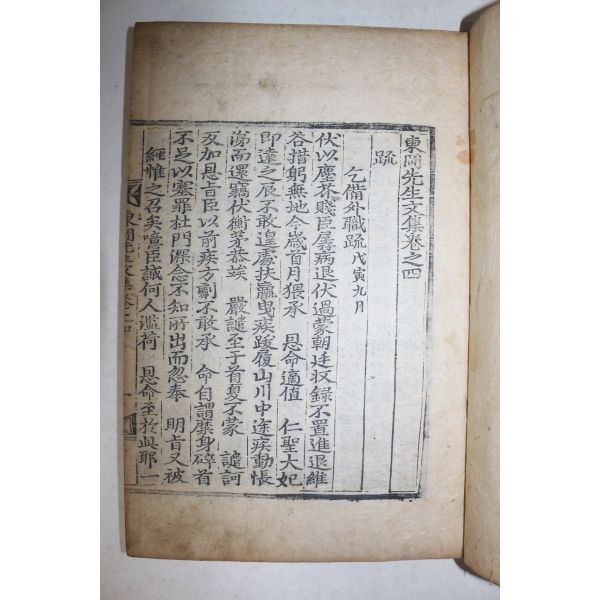 東岡先生文集卷之四
疏
乞備外職疏 戊寅九月
伏以塵芥賤臣孱病退伏過蒙朝廷収錄不置進退維
谷措躬無地今歲首月猥承 恩命適値 仁聖大妃
即遠之辰不敢遑處扶羸曳疾跋履山川中途疾動悵
涕而還竊伏衡茅恭竢 嚴譴至于首夏不蒙 譴訶
反加恩旨臣以前疾方劇不敢承 命自謂糜身碎首
不足以塞罪杜門深念不知所出而忽奉 明旨又被
經帷之召矣噫臣誠何人濫荷 恩命至於此耶一